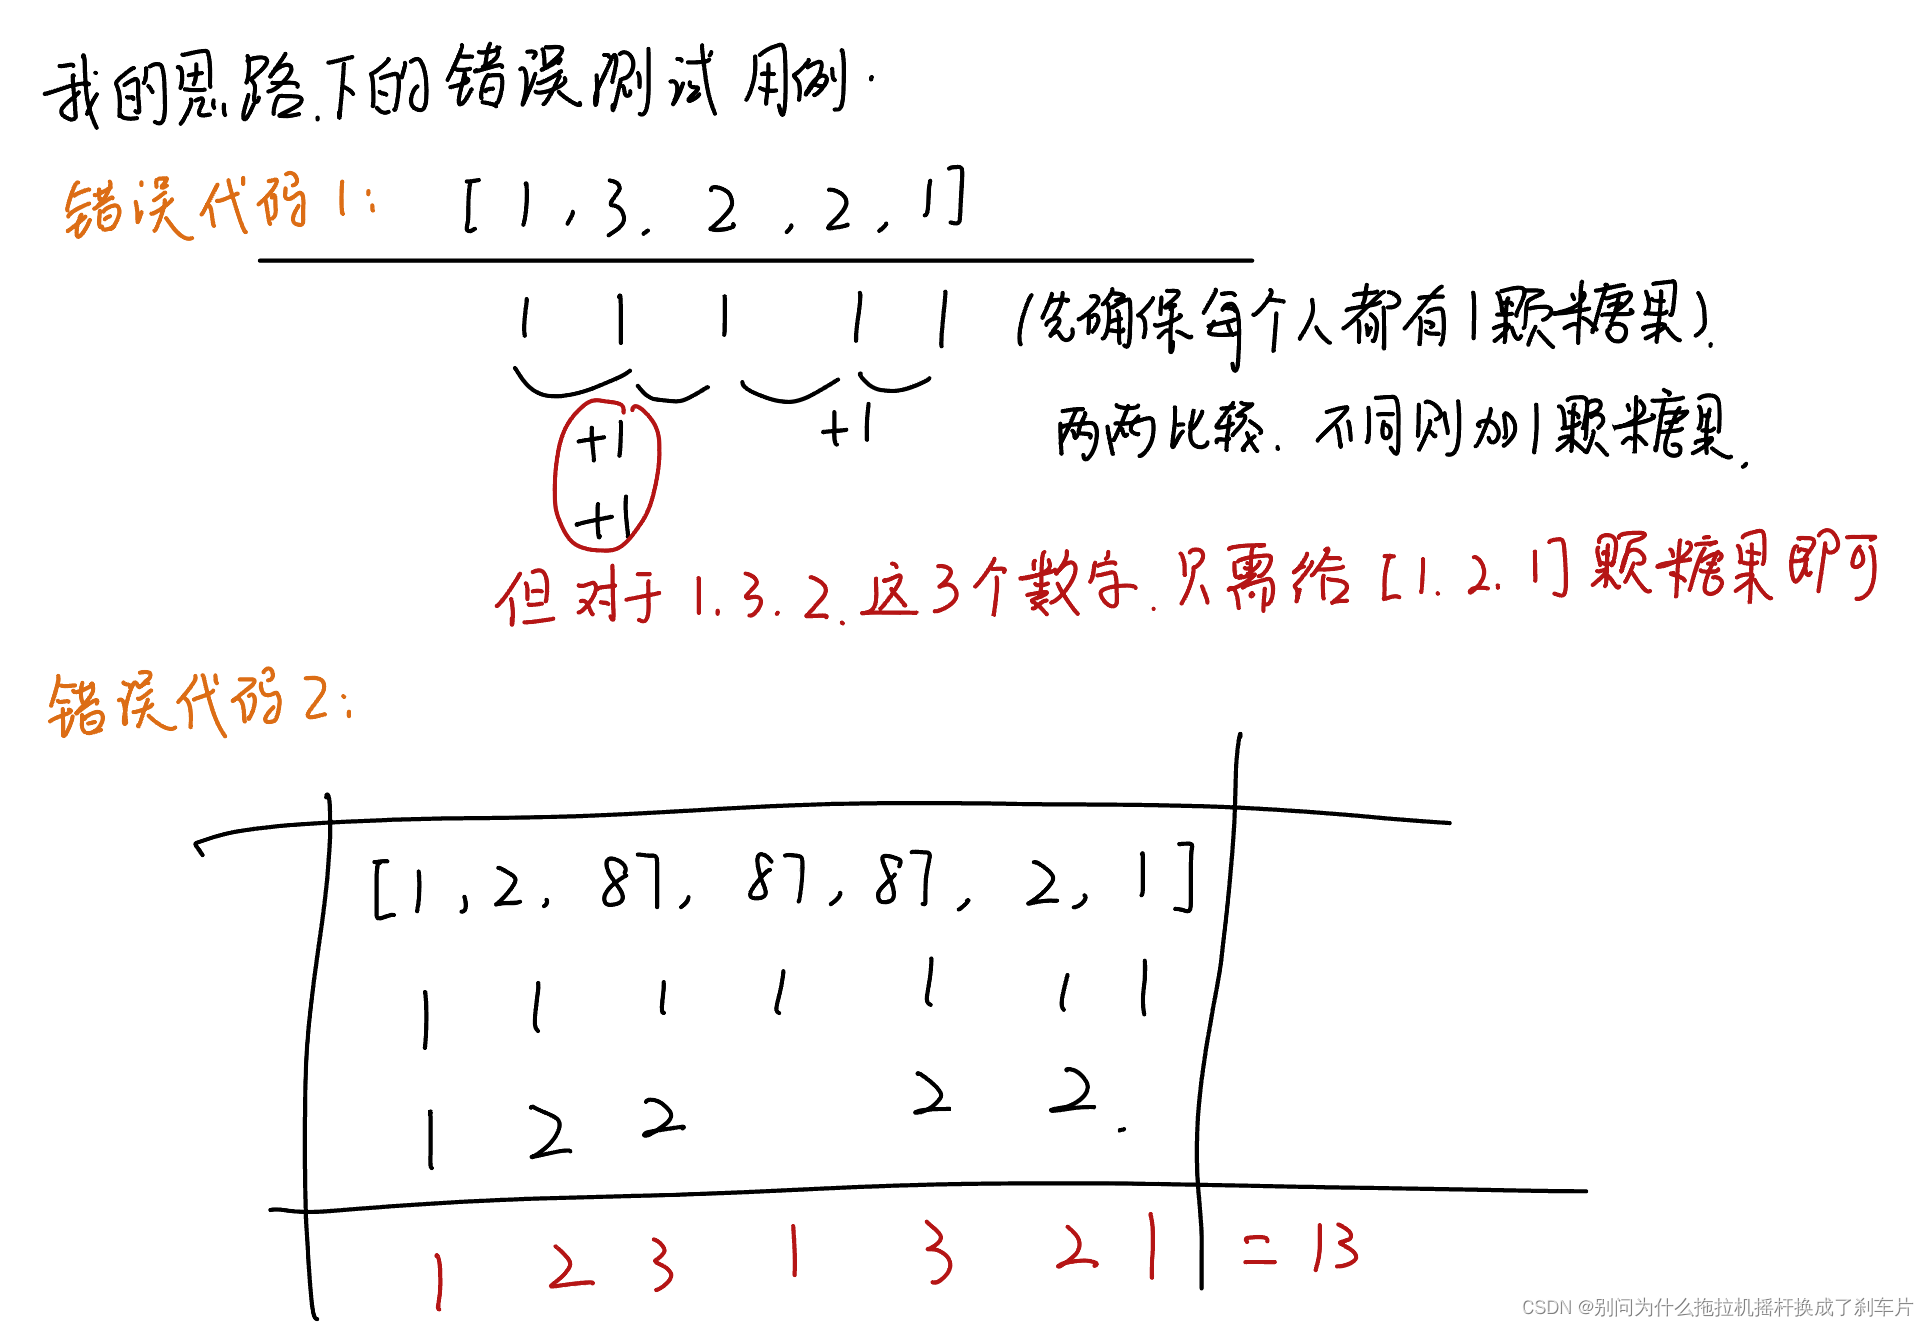 我的思路.下的错误测试用例.
错误代码1: [1,3.2,2,1]
1 1 1 1 1 (先确保每个人都有1颗糖果).
+1 +1 两两比较.不同则加1颗糖果.
+1
但对于1.3.2.这3个数字.只需给[1.2.1]颗糖果即可
错误代码2:
[1,2,87,87,87,2,1]
1 1 1 1 1 1 1
1 2 2 2 2.
1 2 3 1 3 2 1 = 13
CSDN @别问为什么拖拉机摇杆换成了刹车片